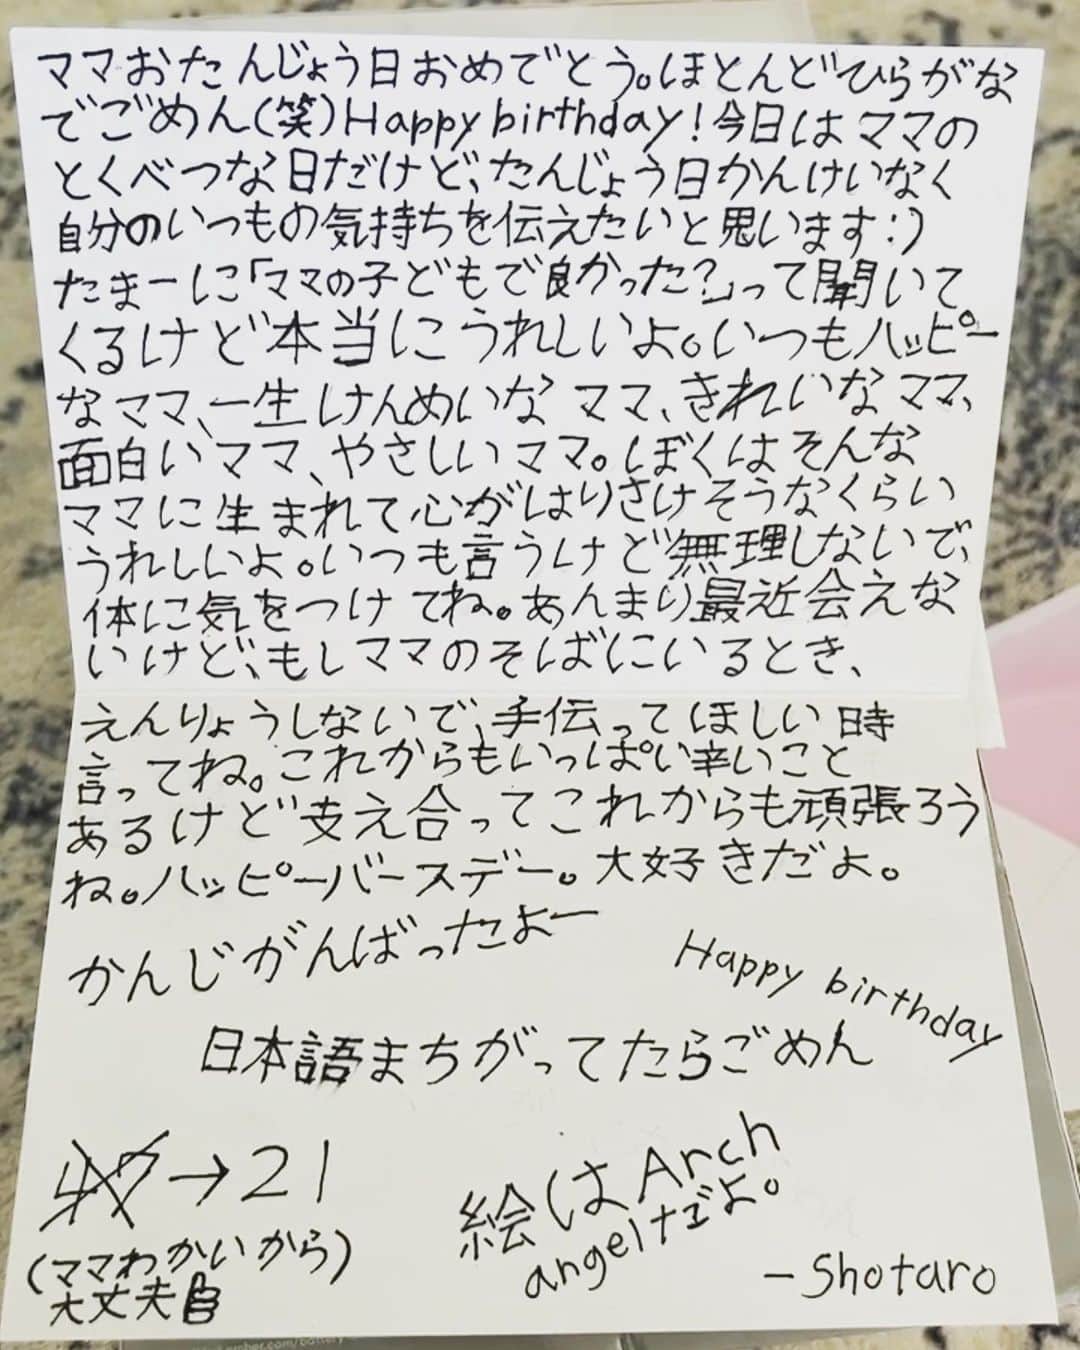 ママおたんじょう日おめでとう。ほとんどひらがな
でごめん(笑)Happy birthday!今日はママの
とくべつな日だけど、たんじょう日かんけいなく
自分のいつもの気持ちを伝えたいと思います:)
たまーに「ママの子どもで良かった?」って聞いて
くるけど本当にうれしいよ。いつもハッピー
なママ、一生けんめいなママ、きれいなママ、
面白いママ、やさしいママ。ぼくはそんな
ママに生まれて心がはりさけそうなくらい
うれしいよ。いつも言うけど無理しないで、
体に気をつけてね。あんまり最近会えな
いけど、もしママのそばにいるとき、
えんりょうしないで、手伝ってほしい時
言ってね。これからもいっぱい辛いこと
あるけど支え合ってこれからも頑張ろう
ね。ハッピーバースデー。大好きだよ。
かんじがんばったよー
Happy birthday
日本語まちがってたらごめん
47→21
(ママわかいから)
大丈夫
絵はArch
angelだよ。
-Shotaro